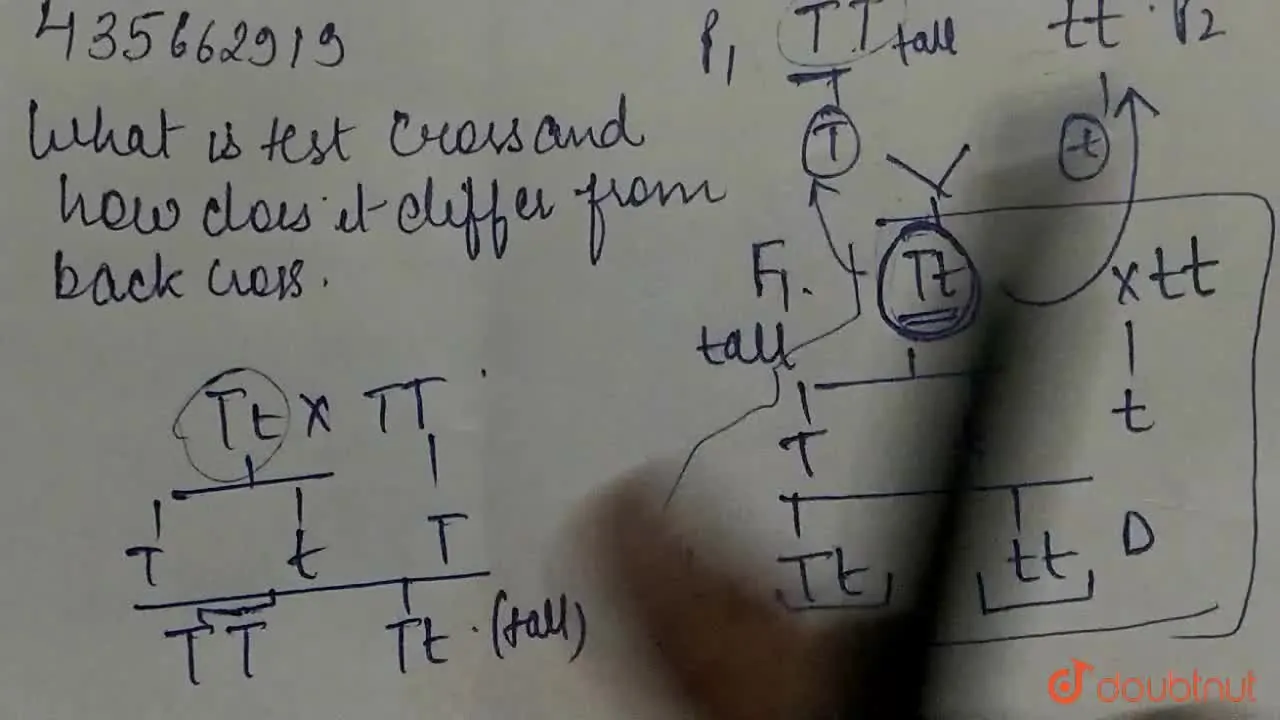 435662919
What is test cross and
how does it differ from
back cross.
P1 TT tall tt. P2
T t
F1. Tt x tt
tall
T t
Tt tt D
Tt x TT
T t T
TT Tt. (tall)
doubtnut